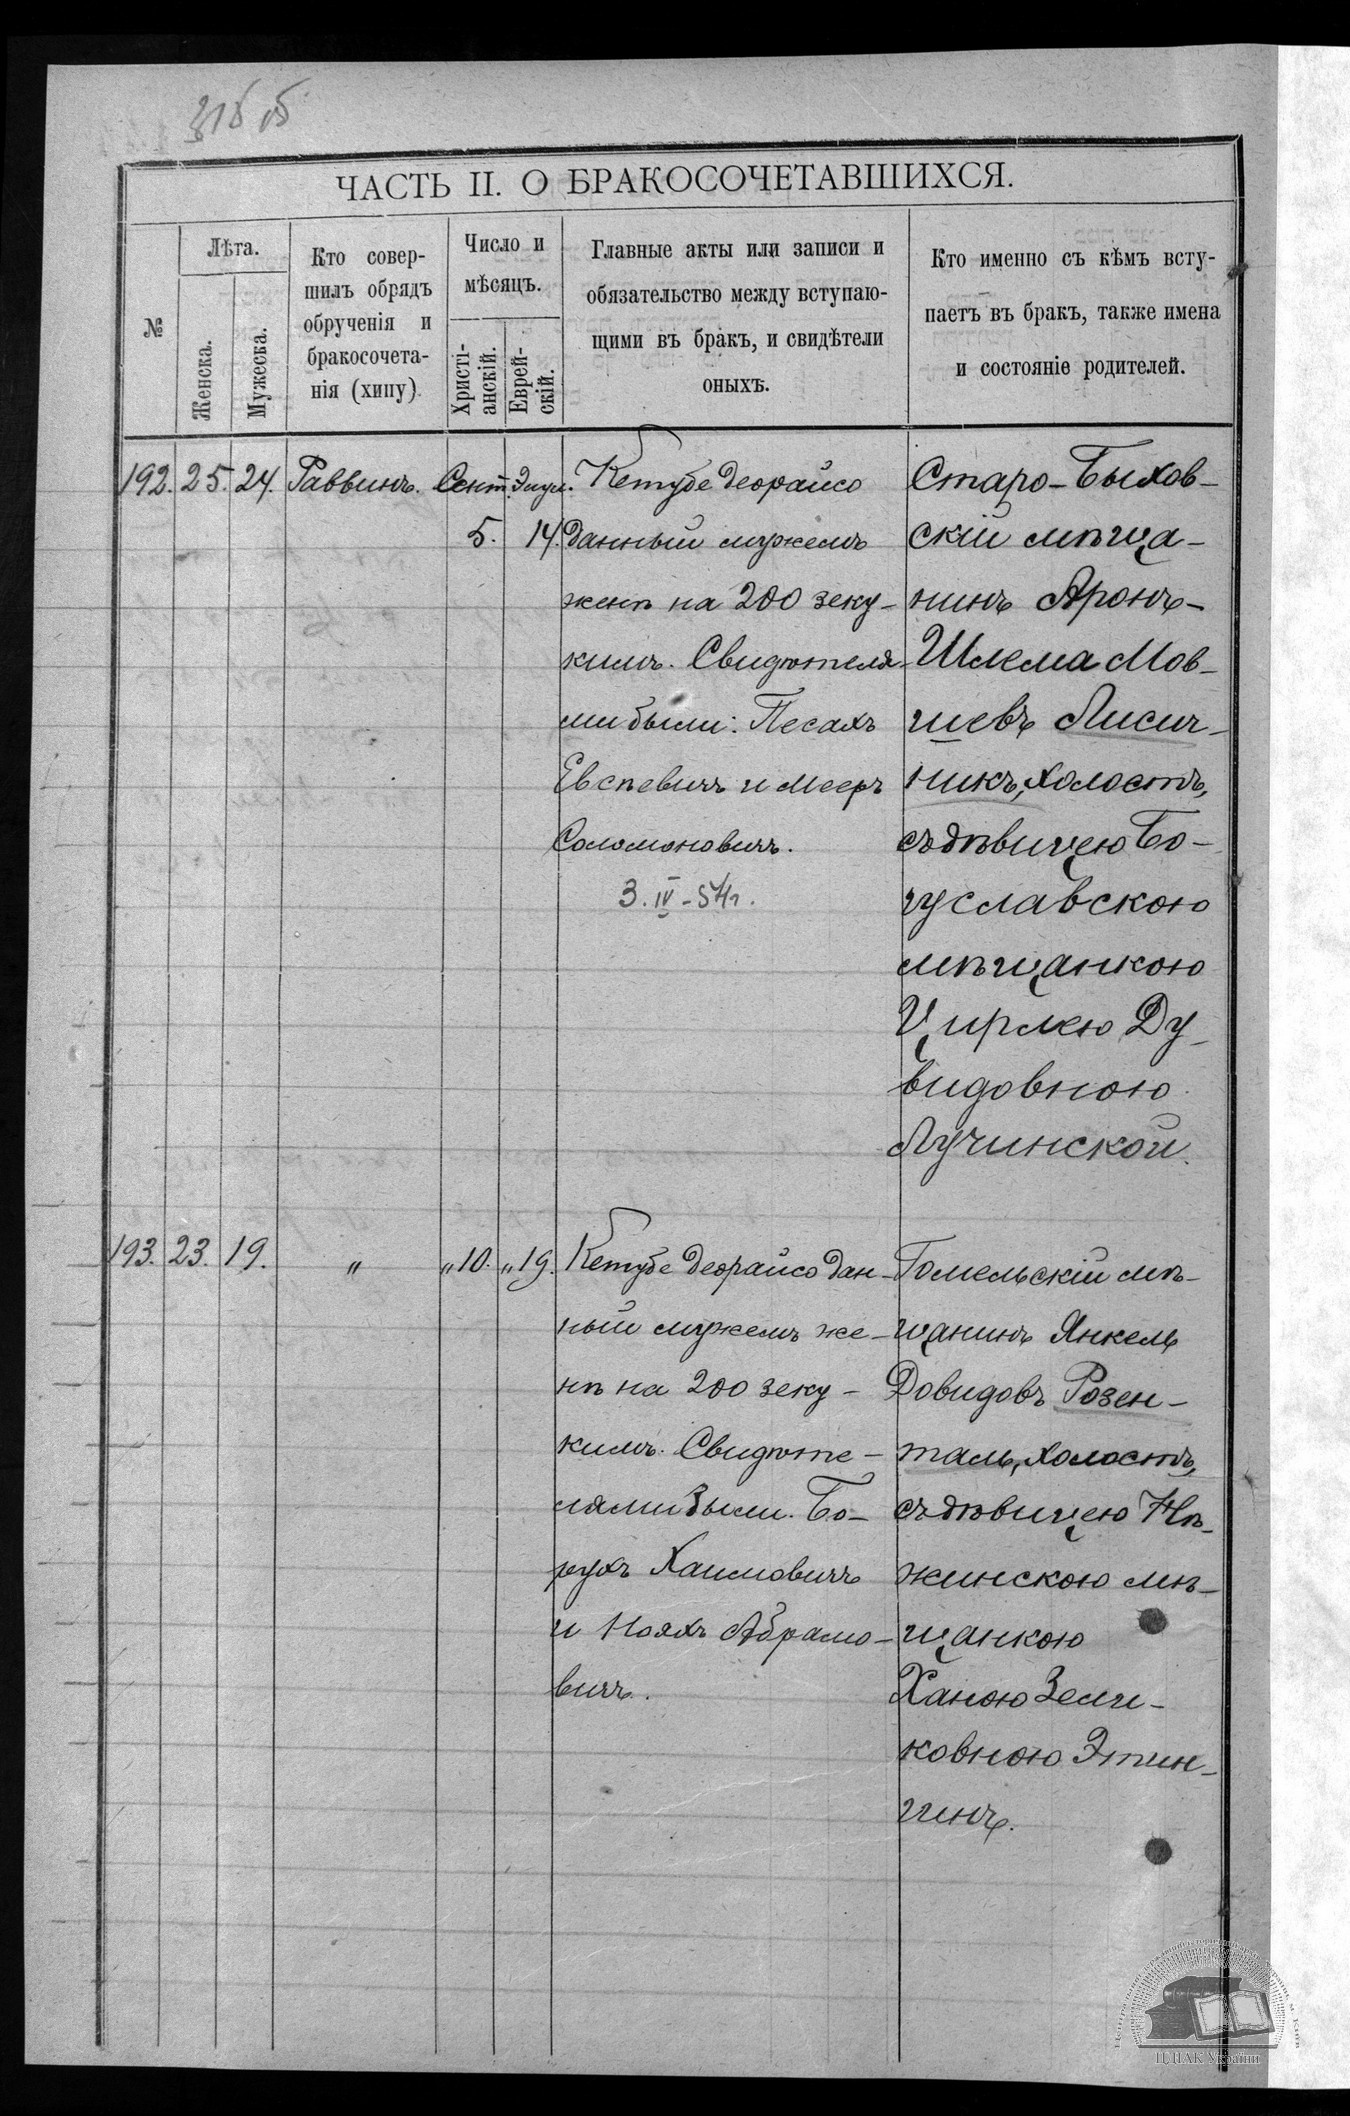 315 об
ЧАСТЬ II. О БРАКОСОЧЕТАВШИХСЯ.
№
Лѣта.
Женска.
Мужеска.
Кто совер-
шилъ обрядъ
обрученія и
бракосочета-
нія (хипу)
Число и
мѣсяцъ.
Христі-
анскій.
Еврей-
скій.
Главные акты или записи и
обязательство между вступаю-
щими въ бракъ, и свидѣтели
оныхъ.
Кто именно съ кѣмъ всту-
паетъ въ бракъ, также имена
и состояніе родителей.
192. 25. 24. Раввинъ. Сент. Элул.
5. 14.
Кетубе деорайсо
данный мужемъ
женѣ на 200 зеку-
кимъ. Свидѣтеля-
ми были: Песахъ
Евсѣевичъ и Мееръ
Соломоновичъ.
3. IV - 54 г.
Старо-Быхов-
скій мѣща-
нинъ Аронъ-
Шлема Мов-
шевъ Лисич-
никъ, холостъ,
съ дѣвицею Бо-
гуславскою
мѣщанкою
Цирлею Ду-
видовною
Лучинской.
193. 23. 19. „ „ 10. „ 19.
Кетубе деорайсо дан-
ный мужемъ же-
нѣ на 200 зеку-
кимъ. Свидѣте-
лями были. Бо-
рухъ Хаимовичъ
и Ноахъ Абрамо-
вичъ.
Гомельскій мѣ-
щанинъ Янкель
Довидовъ Розен-
таль, холостъ,
съ дѣвицею Нѣ-
жинскою мѣ-
щанкою
Ханою Зели-
ковною Этин-
гинъ.
ЦДІАК України